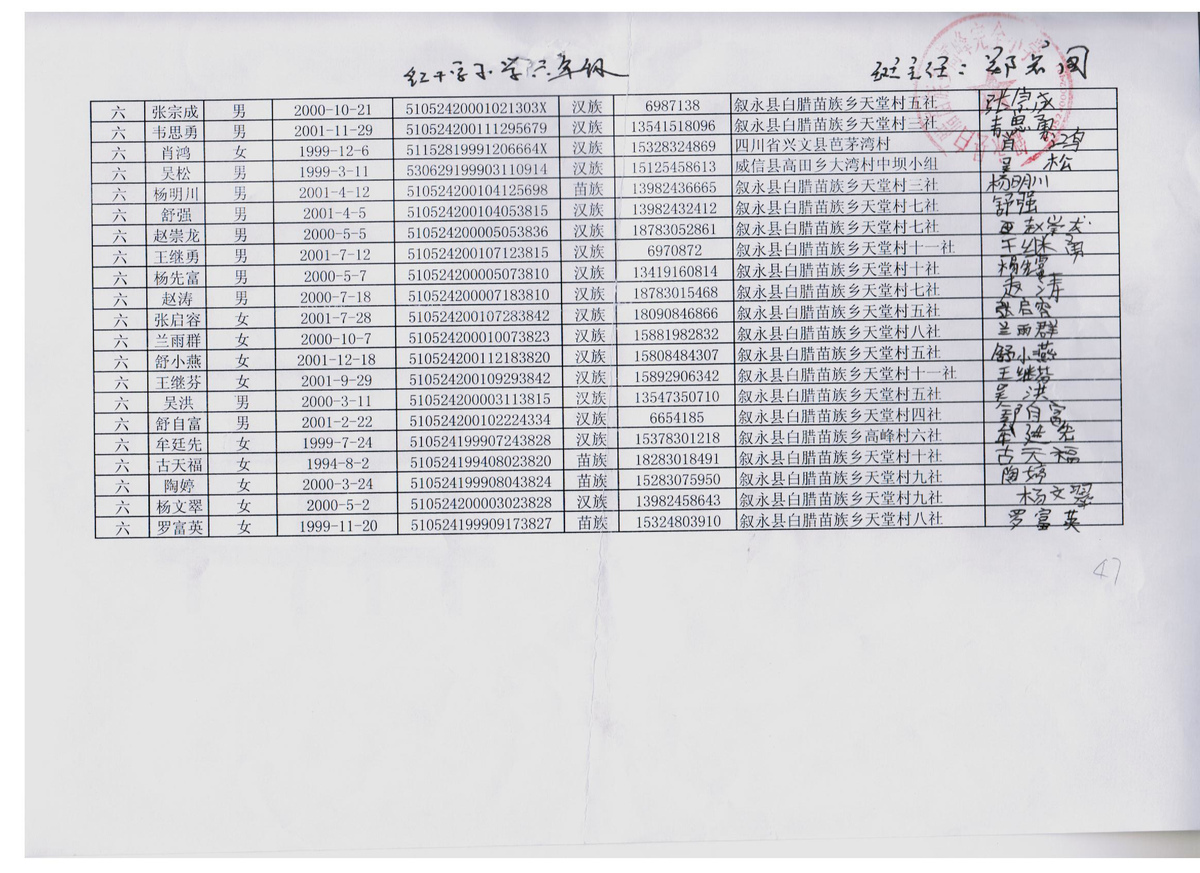 红十字小学六年级 班主任：郑
六 张宗成 男 2000-10-21 51052420001021303X 汉族 6987138 叙永县白腊苗族乡天堂村五社 张宗成
六 韦思勇 男 2001-11-29 510524200111295679 汉族 13541518096 叙永县白腊苗族乡天堂村三社 韦思勇
六 肖鸿 女 1999-12-6 51152819991206664X 汉族 15328324869 四川省兴文县芭茅湾村 肖鸿
六 吴松 男 1999-3-11 530629199903110914 汉族 15125458613 威信县高田乡大湾村中坝小组 吴松
六 杨明川 男 2001-4-12 510524200104125698 苗族 13982436665 叙永县白腊苗族乡天堂村三社 杨明川
六 舒强 男 2001-4-5 510524200104053815 汉族 13982432412 叙永县白腊苗族乡天堂村七社 舒强
六 赵崇龙 男 2000-5-5 510524200005053836 汉族 18783052861 叙永县白腊苗族乡天堂村七社 赵崇龙
六 王继勇 男 2001-7-12 510524200107123815 汉族 6970872 叙永县白腊苗族乡天堂村十一社 王继勇
六 杨先富 男 2000-5-7 510524200005073810 汉族 13419160814 叙永县白腊苗族乡天堂村十社 杨先富
六 赵涛 男 2000-7-18 510524200007183810 汉族 18783015468 叙永县白腊苗族乡天堂村七社 赵涛
六 张启容 女 2001-7-28 510524200107283842 汉族 18090846866 叙永县白腊苗族乡天堂村五社 张启容
六 兰雨群 女 2000-10-7 510524200010073823 汉族 15881982832 叙永县白腊苗族乡天堂村八社 兰雨群
六 舒小燕 女 2001-12-18 510524200112183820 汉族 15808484307 叙永县白腊苗族乡天堂村五社 舒小燕
六 王继芬 女 2001-9-29 510524200109293842 汉族 15892906342 叙永县白腊苗族乡天堂村十一社 王继芬
六 吴洪 男 2000-3-11 510524200003113815 汉族 13547350710 叙永县白腊苗族乡天堂村五社 吴洪
六 舒自富 男 2001-2-22 510524200102224334 汉族 6654185 叙永县白腊苗族乡天堂村四社 自富
六 牟廷先 女 1999-7-24 510524199907243828 汉族 15378301218 叙永县白腊苗族乡高峰村六社 牟廷先
六 古天福 女 1994-8-2 510524199408023820 苗族 18283018491 叙永县白腊苗族乡天堂村十社 古天福
六 陶婷 女 2000-3-24 510524199908043824 苗族 15283075950 叙永县白腊苗族乡天堂村九社 陶婷
六 杨文翠 女 2000-5-2 510524200003023828 汉族 13982458643 叙永县白腊苗族乡天堂村九社 杨文翠
六 罗富英 女 1999-11-20 510524199909173827 苗族 15324803910 叙永县白腊苗族乡天堂村八社 罗富英
47